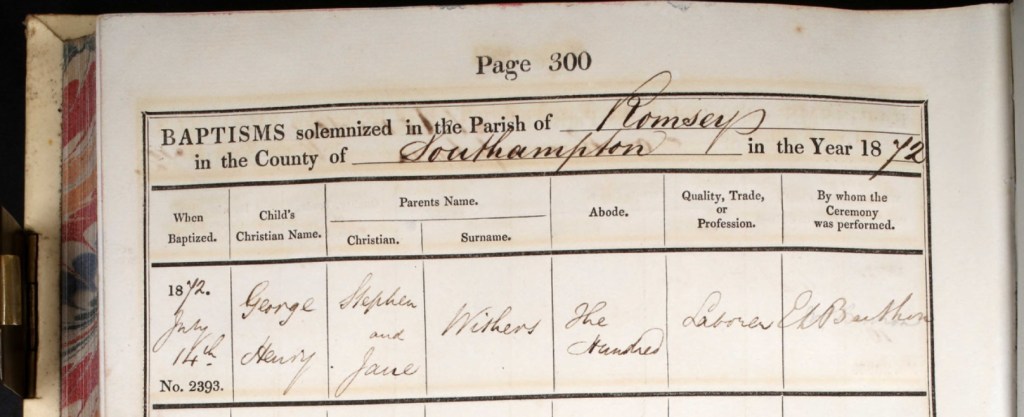 Page 300
BAPTISMS solemnized in the Parish of Romsey
in the County of Southampton in the Year 1872
When Baptized.
Child's Christian Name.
Parents Name.
Christian.
Surname.
Abode.
Quality, Trade, or Profession.
By whom the Ceremony was performed.
1872.
July
14th
No. 2393.
George
Henry
Stephen
and
Jane
Withers
The
Hundred
Laborer
E L Berthon